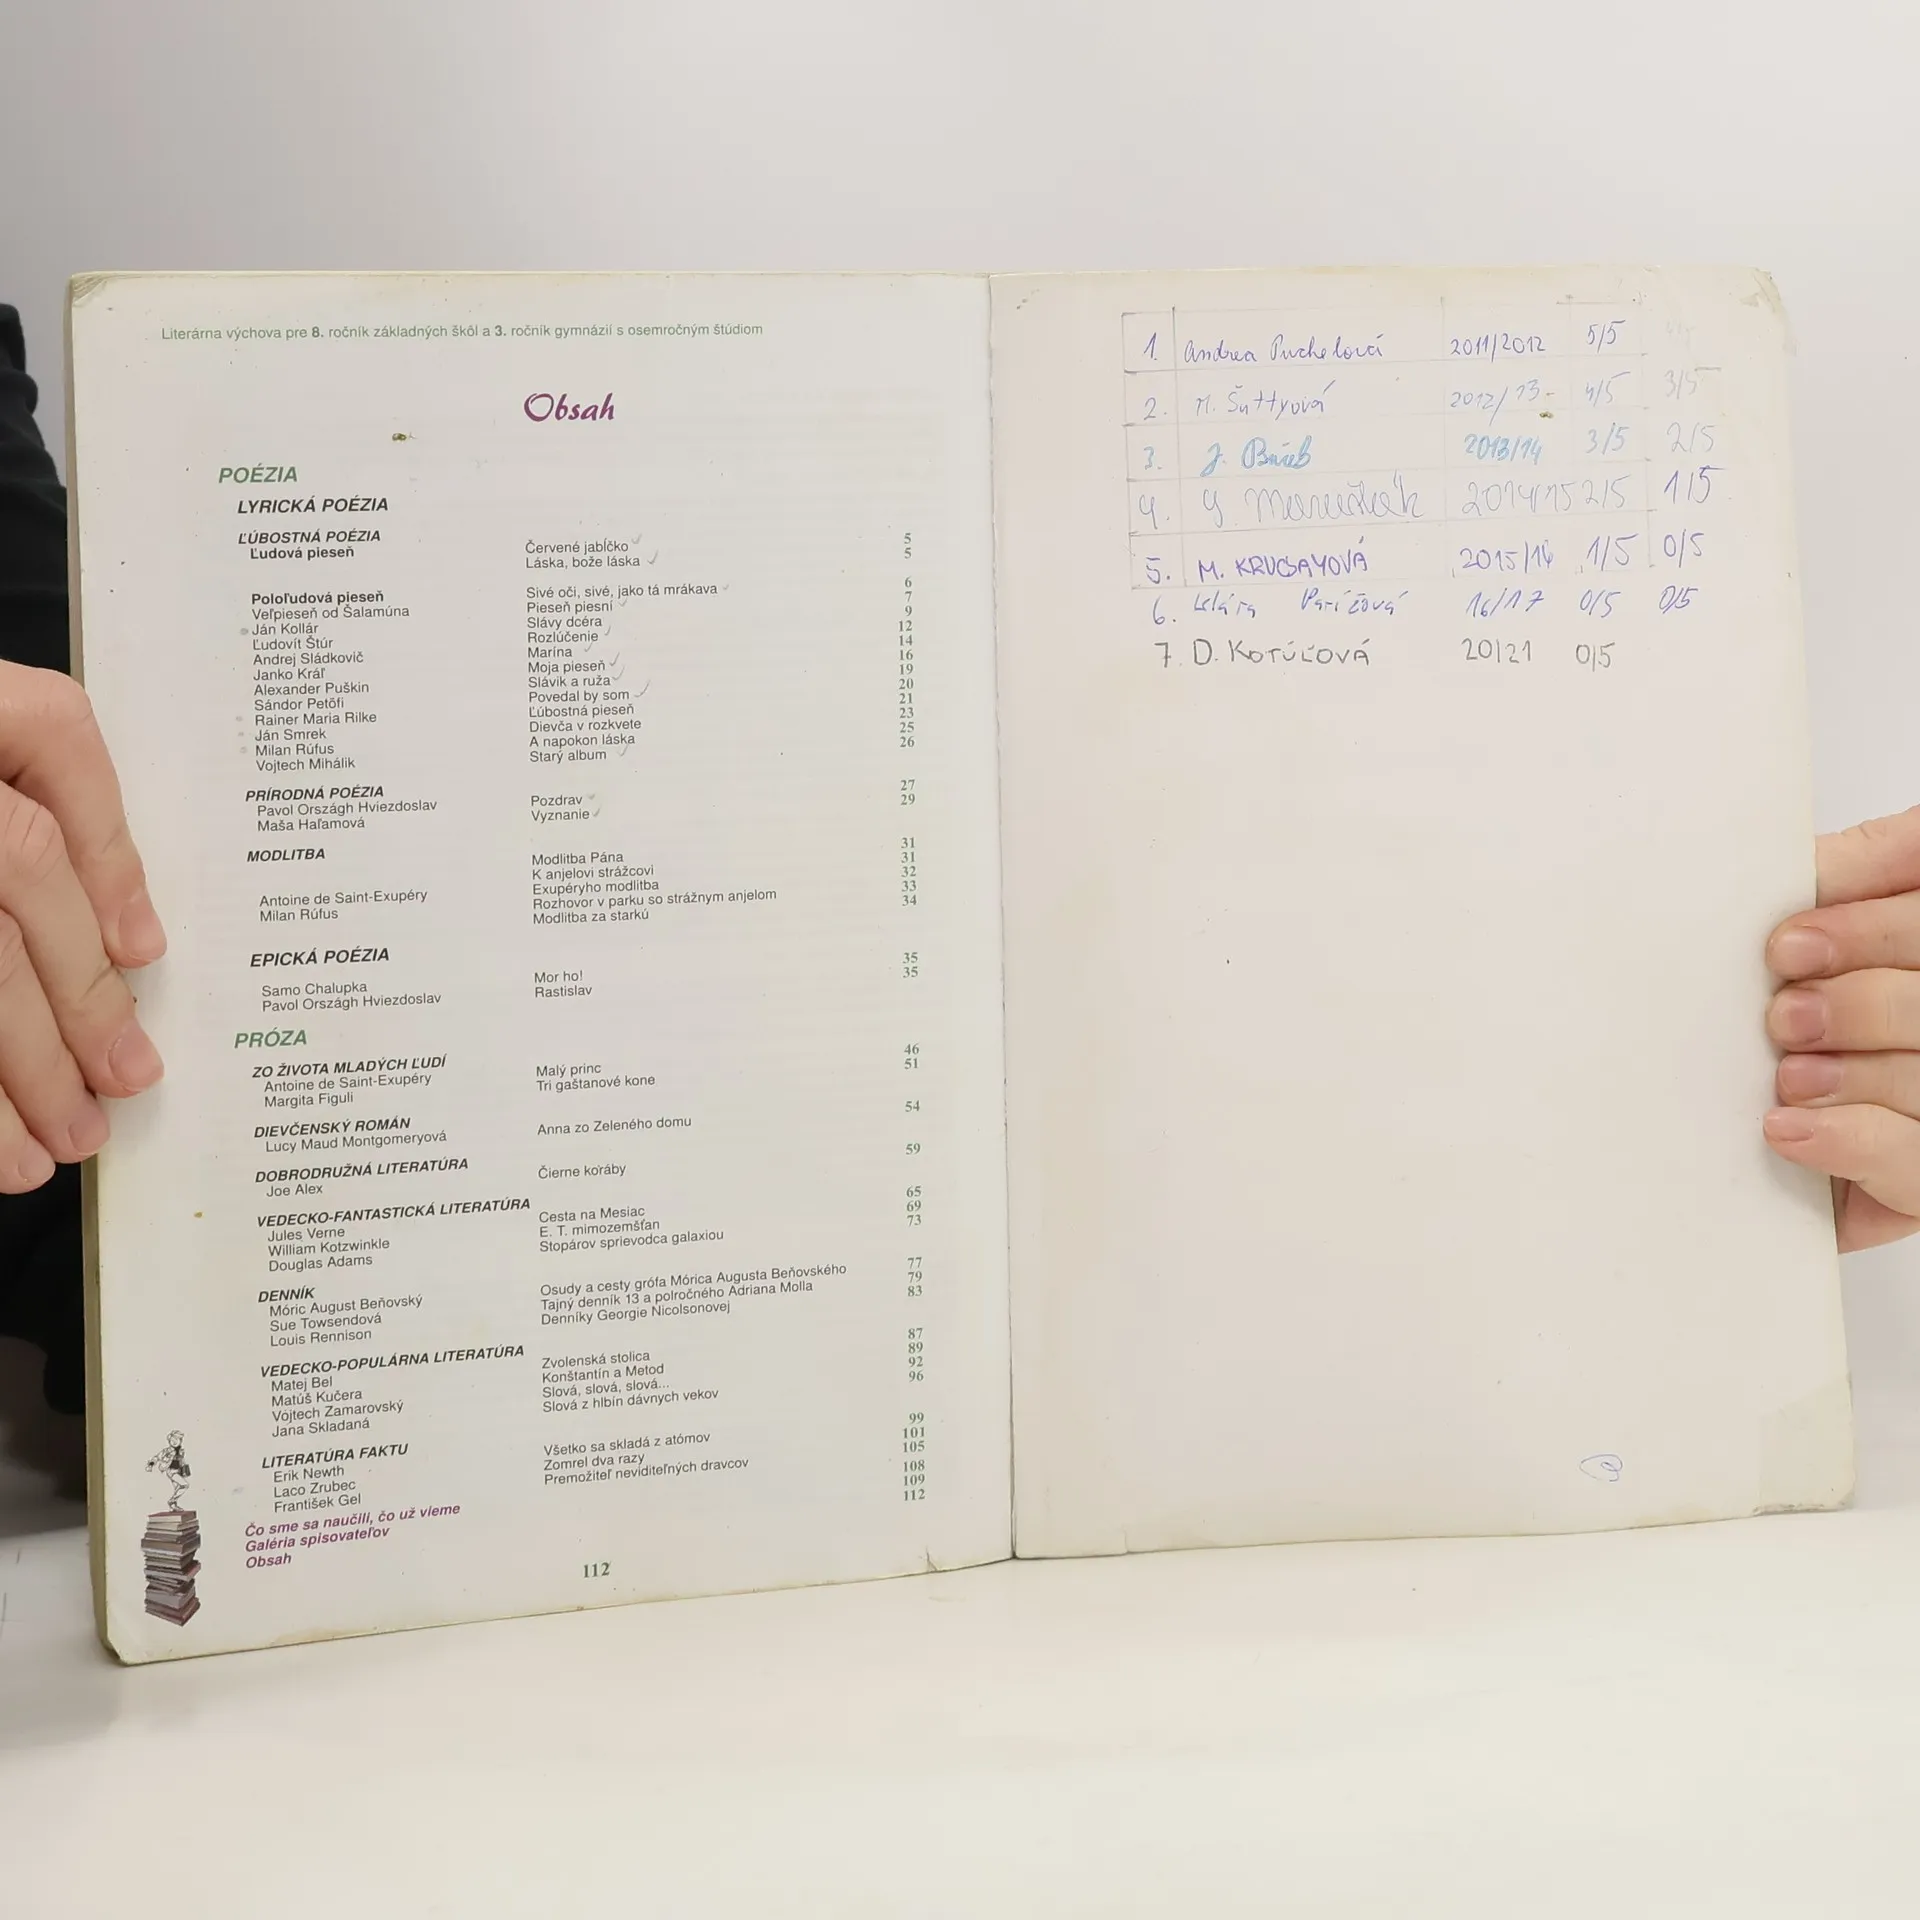 Literárna výchova pre 8. ročník základných škôl a 3. ročník gymnázií s osemročným štúdiom
Obsah
POÉZIA
LYRICKÁ POÉZIA
ĽÚBOSTNÁ POÉZIA
Ľudová pieseň Červené jabĺčko 5
Láska, bože láska 5
Pololudová pieseň Sivé oči, sivé, jako tá mrákava 6
Veľpieseň od Šalamúna Pieseň piesní 7
Ján Kollár Slávy dcéra 9
Ľudovít Štúr Rozlúčenie 12
Andrej Sládkovič Marína 14
Janko Kráľ Moja pieseň 16
Alexander Puškin Slávik a ruža 19
Sándor Petőfi Povedal by som 20
Rainer Maria Rilke Ľúbostná pieseň 21
Ján Smrek Dievča v rozkvete 23
Milan Rúfus A napokon láska 25
Vojtech Mihálik Starý album 26
PRÍRODNÁ POÉZIA
Pavol Országh Hviezdoslav Pozdrav 27
Maša Haľamová Vyznanie 29
MODLITBA
Modlitba Pána 31
K anjelovi strážcovi 31
Antoine de Saint-Exupéry Exupéryho modlitba 32
Milan Rúfus Rozhovor v parku so strážnym anjelom 33
Modlitba za starkú 34
EPICKÁ POÉZIA
Samo Chalupka Mor ho! 35
Pavol Országh Hviezdoslav Rastislav 35
PRÓZA
ZO ŽIVOTA MLADÝCH ĽUDÍ
Antoine de Saint-Exupéry Malý princ 46
Margita Figuli Tri gaštanové kone 51
DIEVČENSKÝ ROMÁN
Lucy Maud Montgomeryová Anna zo Zeleného domu 54
DOBRODRUŽNÁ LITERATÚRA
Joe Alex Čierne koráby 59
VEDECKO-FANTASTICKÁ LITERATÚRA
Jules Verne Cesta na Mesiac 65
William Kotzwinkle E. T. mimozemšťan 69
Douglas Adams Stopárov sprievodca galaxiou 73
DENNÍK
Móric August Beňovský Osudy a cesty grófa Mórica Augusta Beňovského 77
Sue Towsendová Tajný denník 13 a polročného Adriana Molla 79
Louis Rennison Denníky Georgie Nicolsonovej 83
VEDECKO-POPULÁRNA LITERATÚRA
Matej Bel Zvolenská stolica 87
Matúš Kučera Konštantín a Metod 89
Vojtech Zamarovský Slová, slová, slová... 92
Jana Skladaná Slová z hlbín dávnych vekov 96
LITERATÚRA FAKTU
Erik Newth Všetko sa skladá z atómov 99
Laco Zrubec Zomrel dva razy 101
František Gel Premožiteľ neviditeľných dravcov 105
Čo sme sa naučili, čo už vieme 108
Galéria spisovateľov 109
Obsah 112
112
1. Andrea Puchelová 2011/2012 5/5
2. M. Šuttyová 2012/13- 4/5 3/5
3. J. 2013/14 3/5 2/5
4. 2014/15 2/5 1/5
5. M. KRUCSAYOVÁ 2015/16 1/5 0/5
6. Klára Parížová 16/17 0/5 0/5
7. D. KOTÚĽOVÁ 20/21 0/5